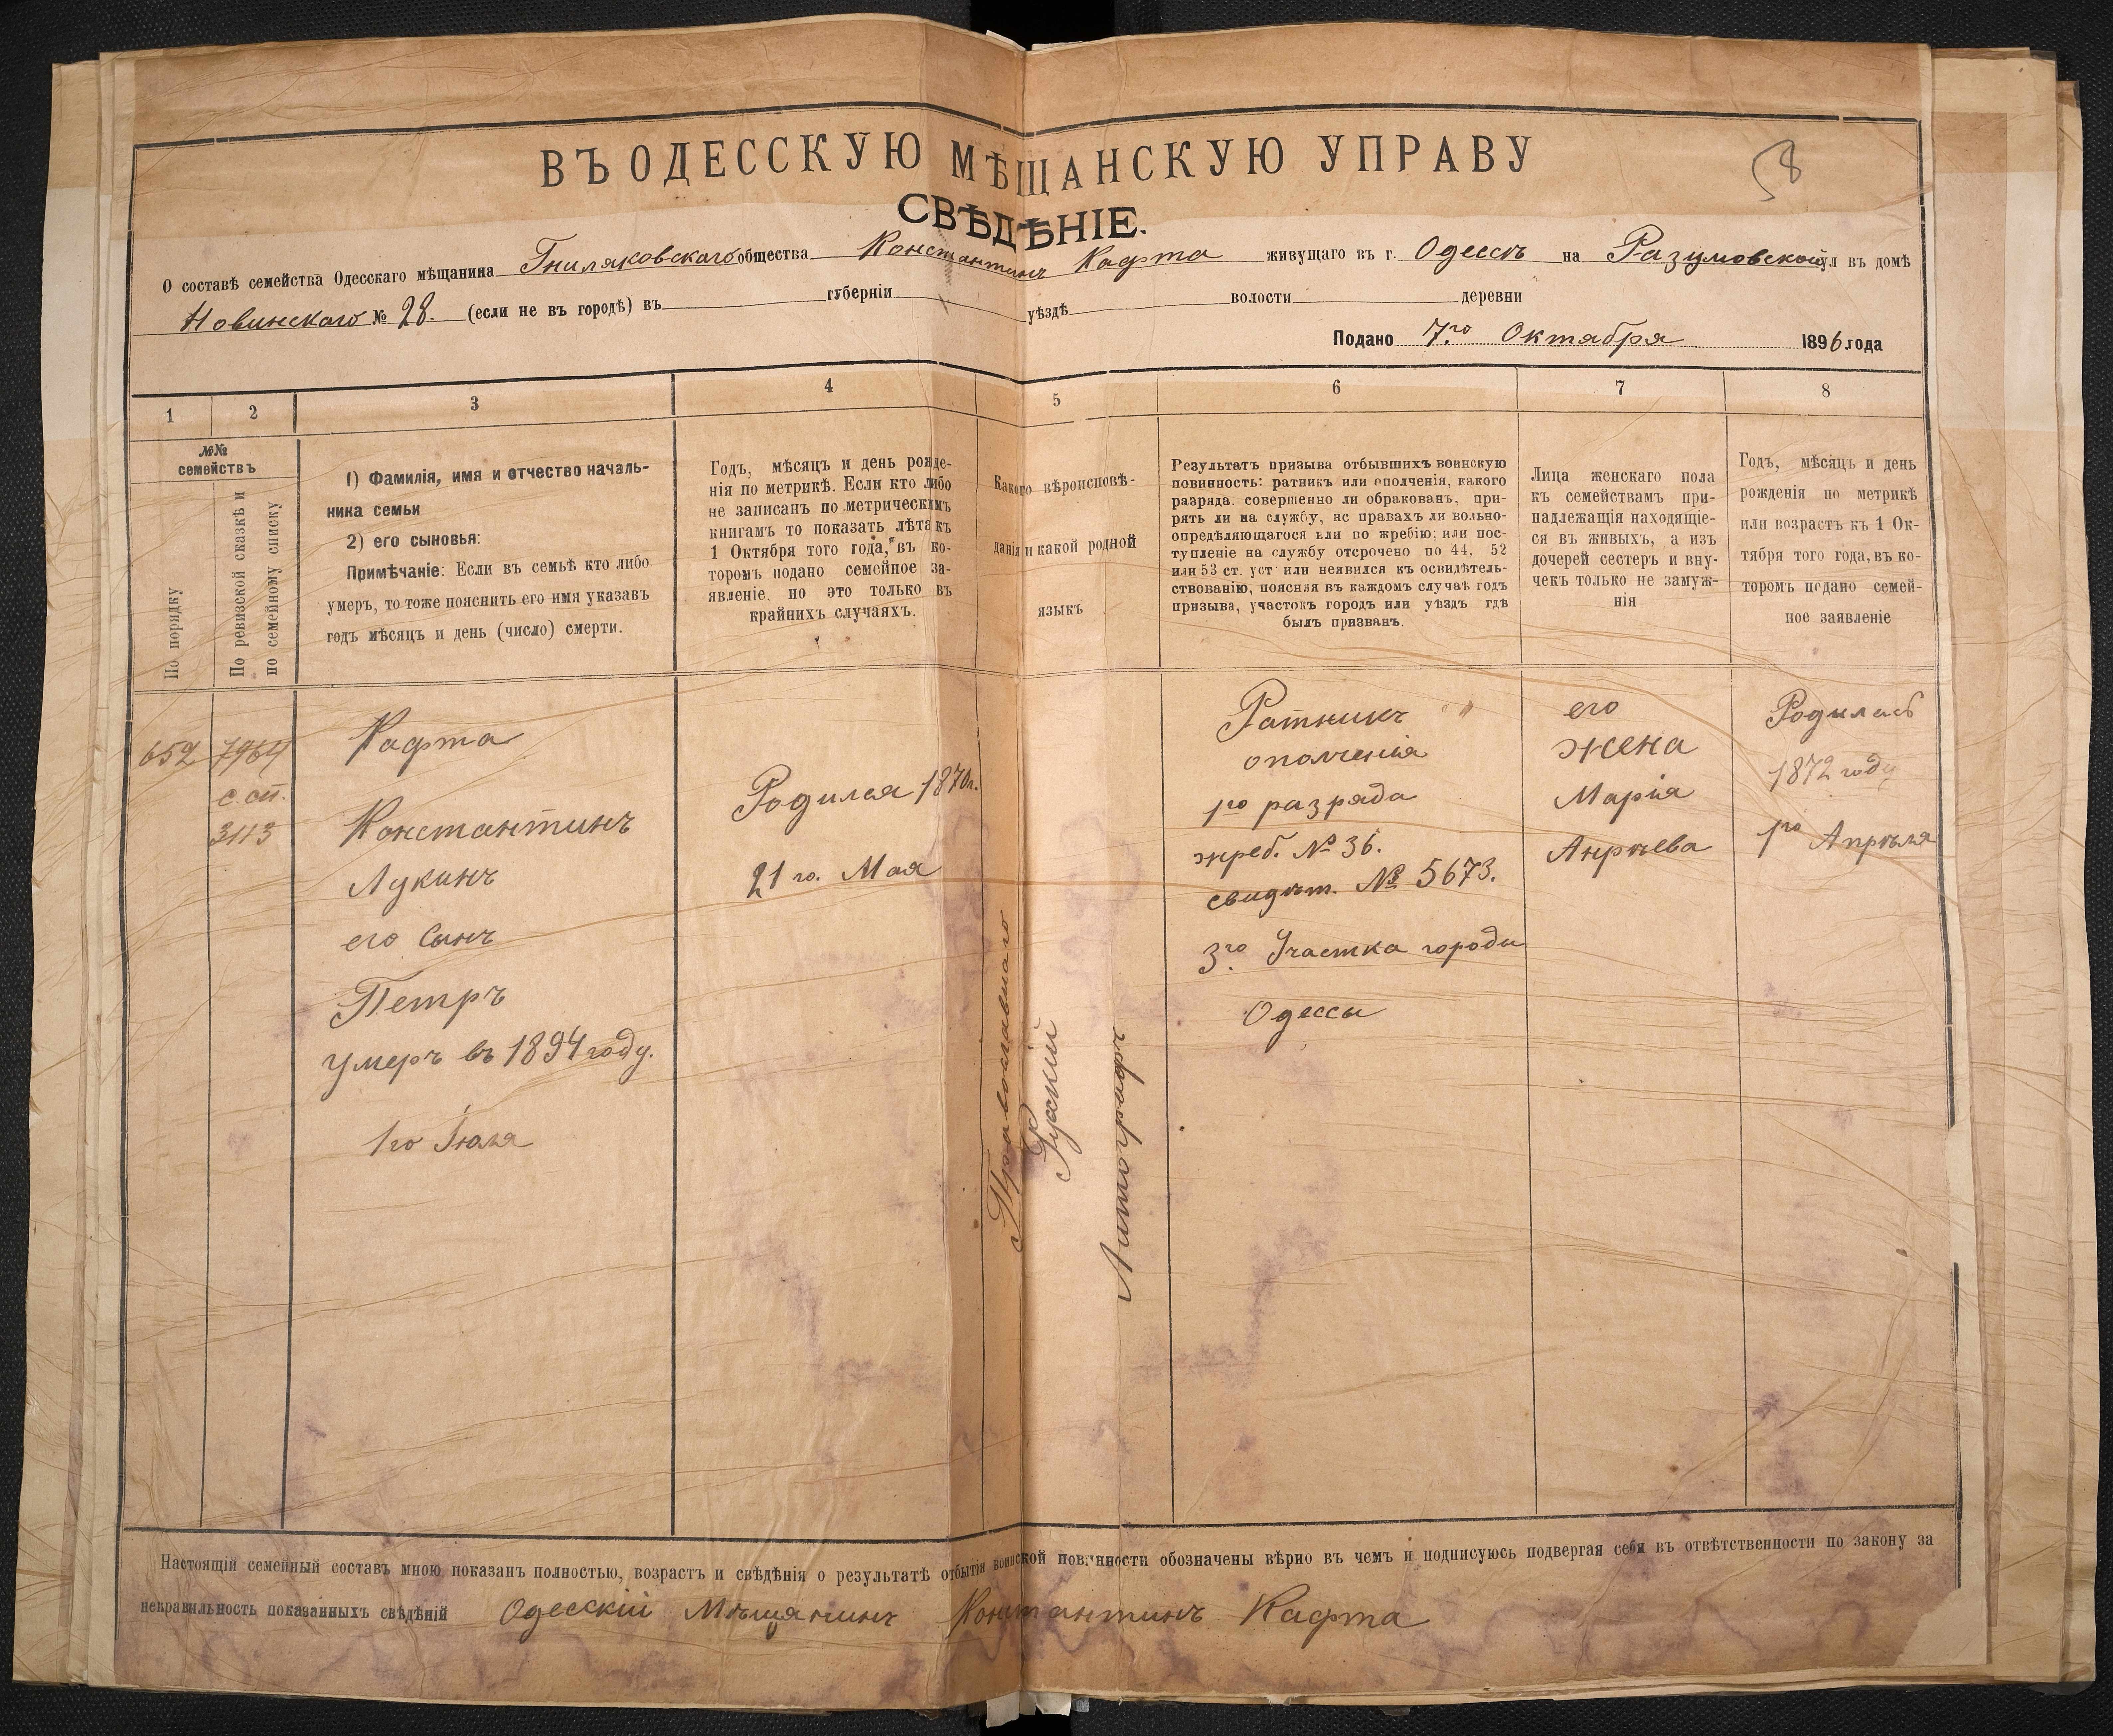 58
ВЪ ОДЕССКУЮ МѢЩАНСКУЮ УПРАВУ
СВѢДѢНІЕ.
О составѣ семейства Одесскаго мѣщанина Гниляковскаго общества Константинъ Кафта живущаго въ г. Одессѣ на Разумовской ул въ домѣ
Новинскаго № 28. (если не въ городѣ) въ губерніи уѣздѣ волости деревни
Подано 7го Октября 1896 года
1 2 3 4 5 6 7 8
№№
семействъ
По порядку
По ревизской сказкѣ и
по семейному списку
1) Фамилія, имя и отчество началь-
ника семьи
2) его сыновья:
Примѣчаніе: Если въ семьѣ кто либо
умеръ, то тоже пояснить его имя указавъ
годъ мѣсяцъ и день (число) смерти.
Годъ, мѣсяцъ и день рожде-
нія по метрикѣ. Если кто либо
не записанъ по метрическимъ
книгамъ то показать лѣта къ
1 Октября того года, въ ко-
торомъ подано семейное за-
явленіе, но это только въ
крайнихъ случаяхъ.
Какого вѣроисповѣ-
данія и какой родной
языкъ
Результатъ призыва отбывшихъ воинскую
повинность: ратникъ или ополченія, какого
разряда. совершенно ли обракованъ, при-
рятъ ли на службу, нс правахъ ли вольно-
опредѣляющагося или по жребію; или пос-
тупленіе на службу отсрочено по 44, 52
или 53 ст. уст или неявился къ освидѣтель-
ствованію, поясняя въ каждомъ случаѣ годъ
призыва, участокъ городъ или уѣздъ гдѣ
былъ призванъ.
Лица женскаго пола
къ семействамъ при-
надлежащія находящіе-
ся въ живыхъ, а изъ
дочерей сестеръ и вну-
чекъ только не замуж-
нія
Годъ, мѣсяцъ и день
рожденія по метрикѣ
или возрастъ къ 1 Ок-
тября того года, въ ко-
торомъ подано семей-
ное заявленіе
652
7964
с. сп.
3113
Кафта
Константинъ
Лукинъ
его Сынъ
Петръ
умеръ въ 1894 году.
1го Іюля
Родился 1870г.
21 го. Мая
Православнаго
Рускій
Литографъ
Ратникъ
ополченія
1го разряда
жреб. № 36.
свидѣт. № 5673.
3го Участка городы
Одессы
его
жена
Марія
Анрѣева
Родилась
1872 году
1го Апрѣля
Настоящій семейный составъ мною показанъ полностью, возрастъ и свѣдѣнія о результатѣ отбытія воинской повинности обозначены вѣрно въ чемъ и подписуюсь подвергая себя въ отвѣтственности по закону за
неправильность показанныхъ свѣдѣній Одесскій Мѣщанинъ Константинъ Кафта